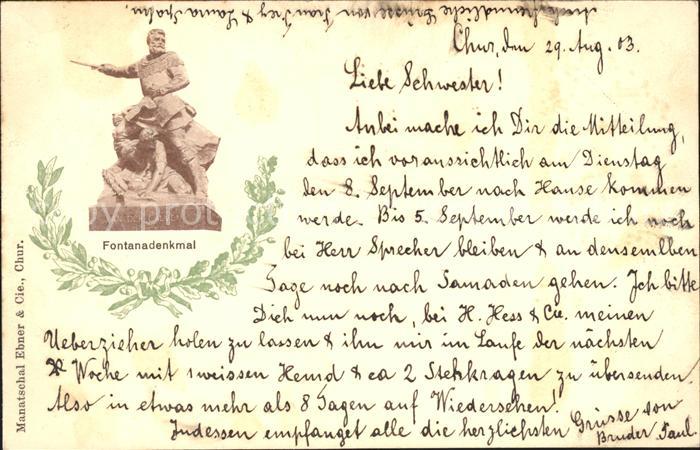 Freundliche Grüsse von Frau Frey & Laura
Chur, den 29. Aug. 03.
Liebe Schwester!
Anbei mache ich Dir die Mitteilung,
dass ich voraussichtlich am Dienstag
den 8. September nach Hause kommen
werde. Bis 5. September werde ich noch
bei Herr Sprecher bleiben & an densemlben
Tage noch nach Samaden gehen. Ich bitte
Dich nun noch, bei H. Hess & Cie. meinen
Ueberzieher holen zu lassen & ihn mir im Laufe der nächsten
Woche mit 1 weissen Hemd & ca 2 Stehkragen zu übersenden.
Also in etwas mehr als 8 Tagen auf Wiedersehen!
Indessen empfanget alle die herzlichsten Grüsse von
Bruder Paul.
Fontanadenkmal
Manatschal Ebner & Cie., Chur.